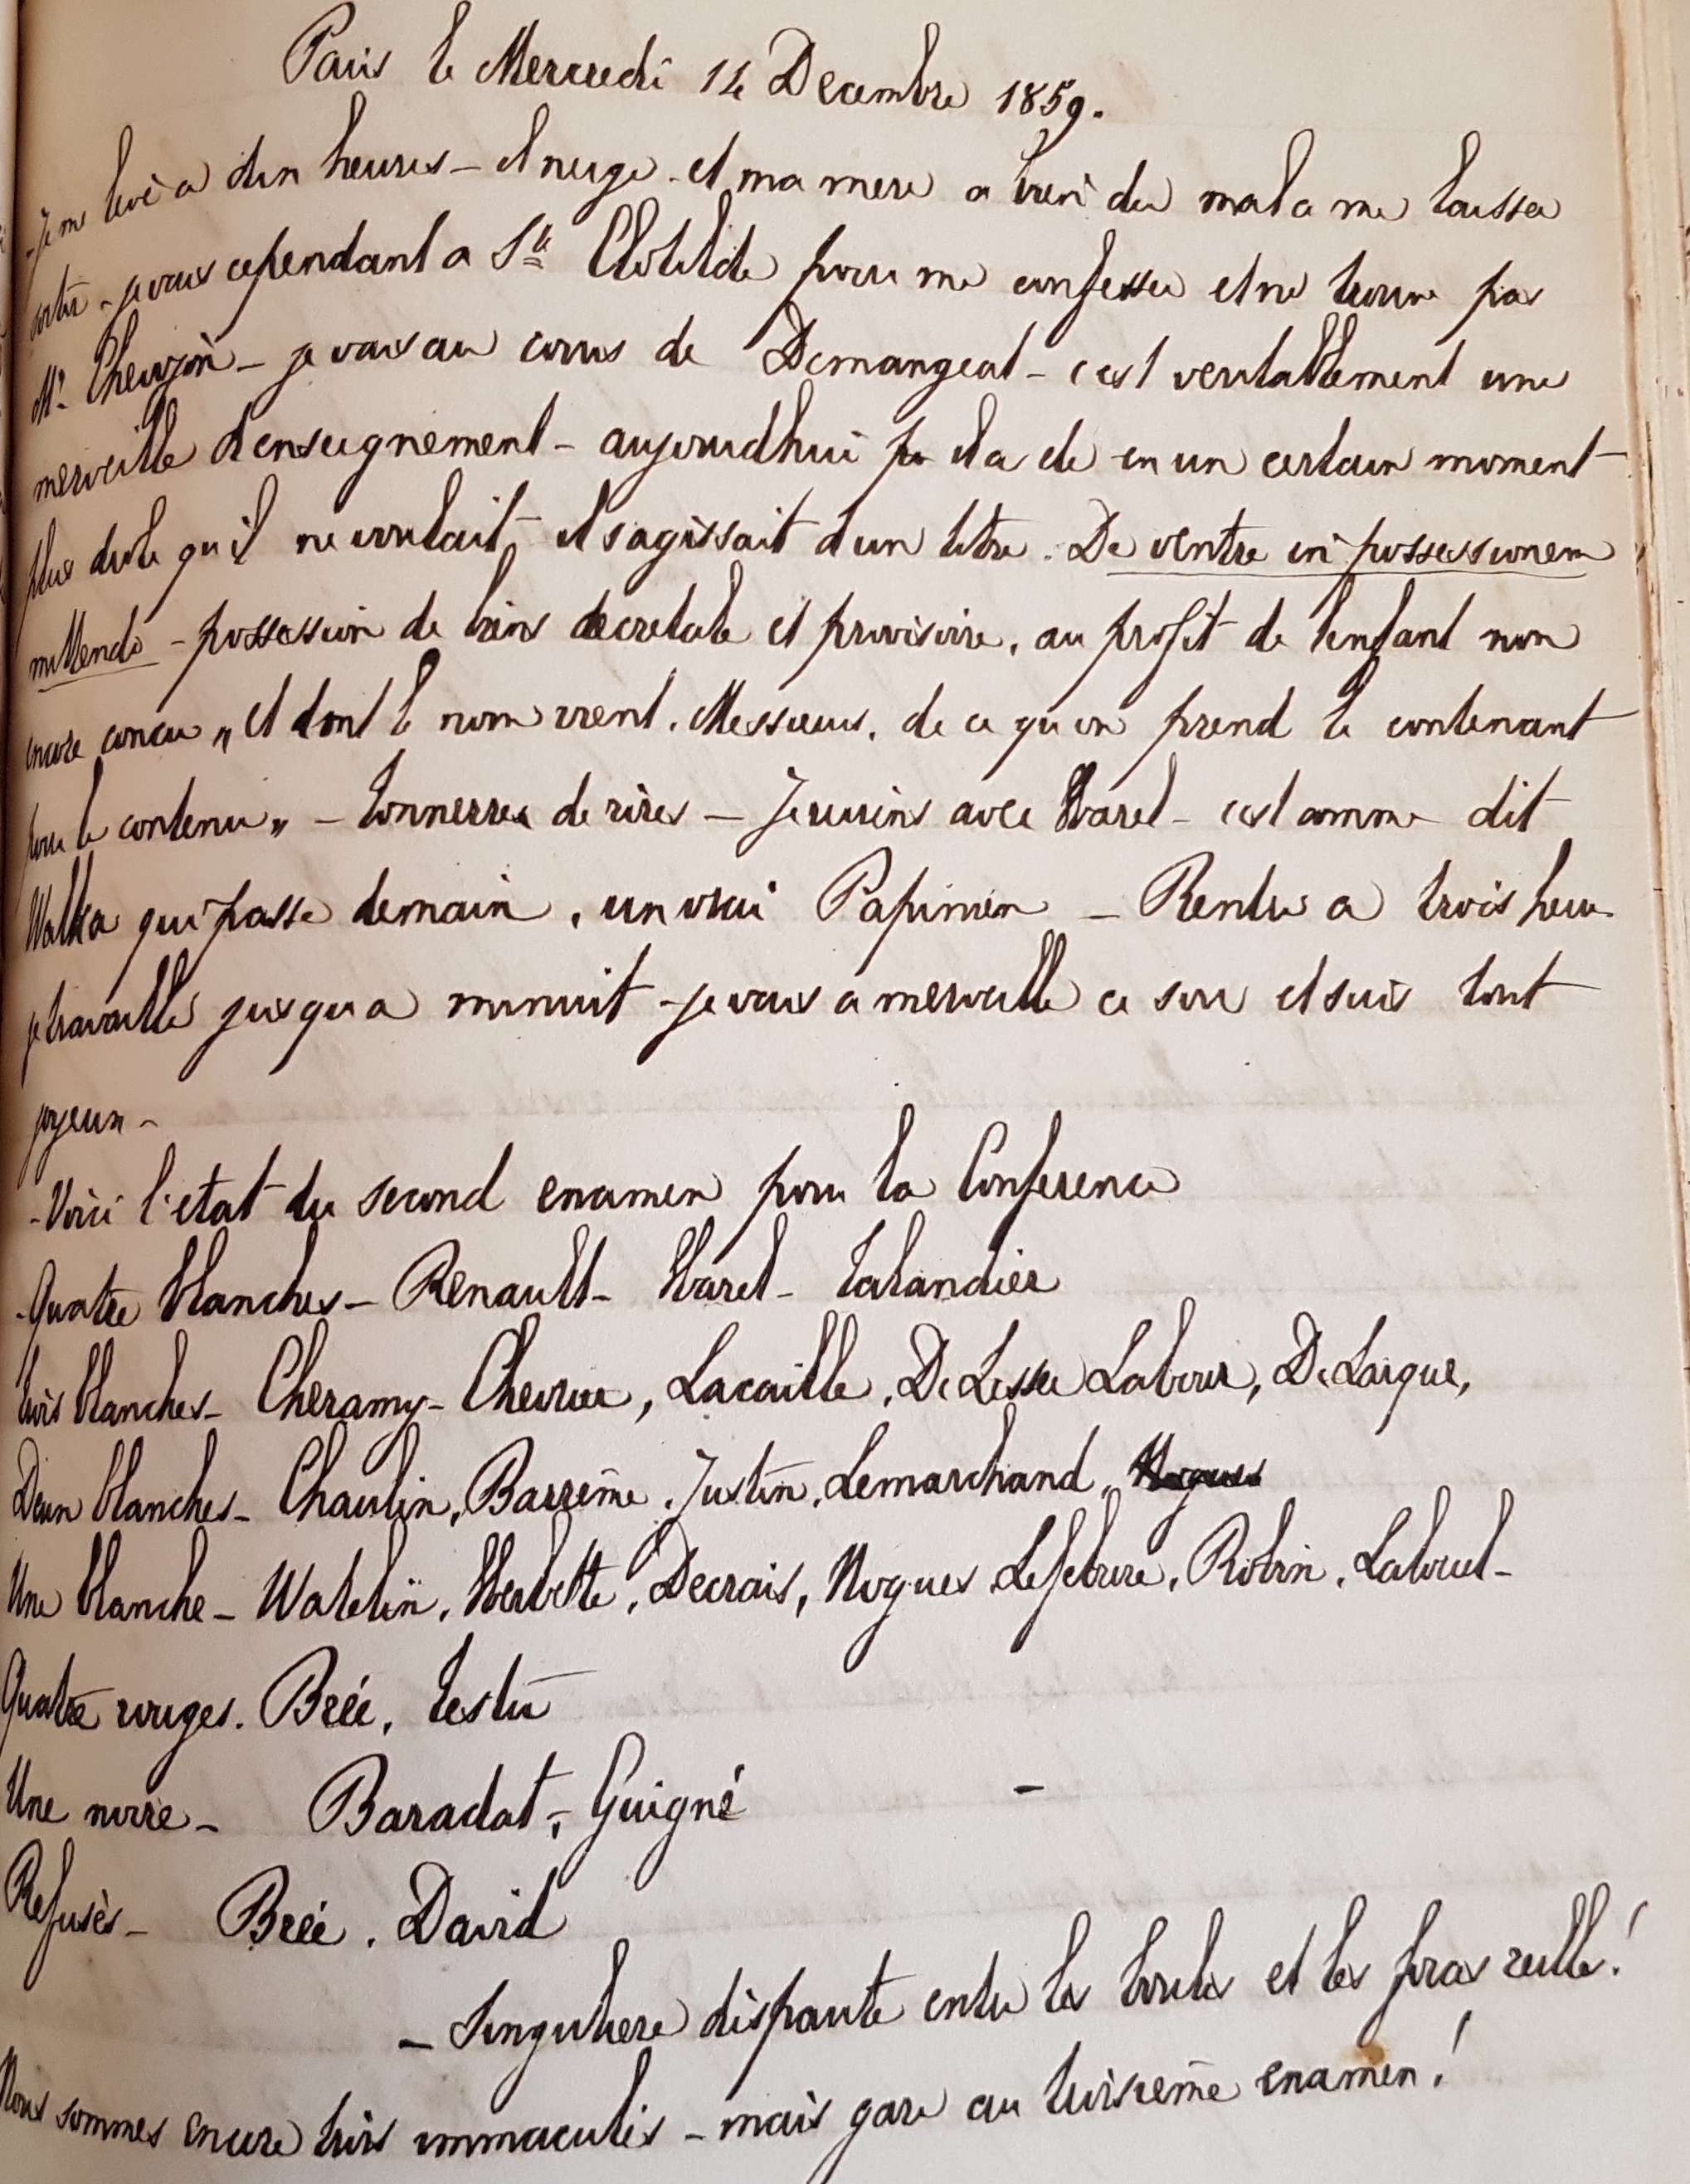 Paris le Mercredi 14 Decembre 1859.
- Je me leve a dix heures - il neige - et ma mere a bien du mal a me laisser
sortir - je vais cependant a Ste Clotilde pour me confesser et ne trouve pas
Mr. Chevojon - je vais au cours de Demangeat - c'est veritablement une
merveille d'enseignement - aujourdhui il a ete en un certain moment
plus drole qu'il ne voulait, il s'agissait d'un titre. De ventre in possessionem
mittendo - possession de biens decretale et provisoire, au profit de l'enfant non
encore concu „ et dont le nom vient. Messieurs, de ce qu'on prend le contenant
pour le contenu „ - tonnerres de rires - Je reviens avec Harel - c'est comme dit
qui passe demain, un vrai Papimen - Rentre a trois heures
je travaille jusqu'a minuit - je vais a merveille ce soir et suis tout
joyeux -
- Voici l'etat du second examen pour la Conference
- Quatre blanches - Renault - Harel - Talandier
trois blanches - Cheramy - Chevrier, Lacaille, De Lesse Labour, De Laigue,
Deux blanches - Chaulin, Barrême, Justin, Lemarchand,
Une blanche - Watelin, Herbette, Decrais, Nogues Lefebvre, Robin,
Quatre rouges. Brée, Testu
Une noire - Baradat, Guigné -
Refusés - Brée, David
- Singuliere disparite entre les boules et les forces reelle!
Nous sommes encore trois immaculés - mais gare au troisieme examen!